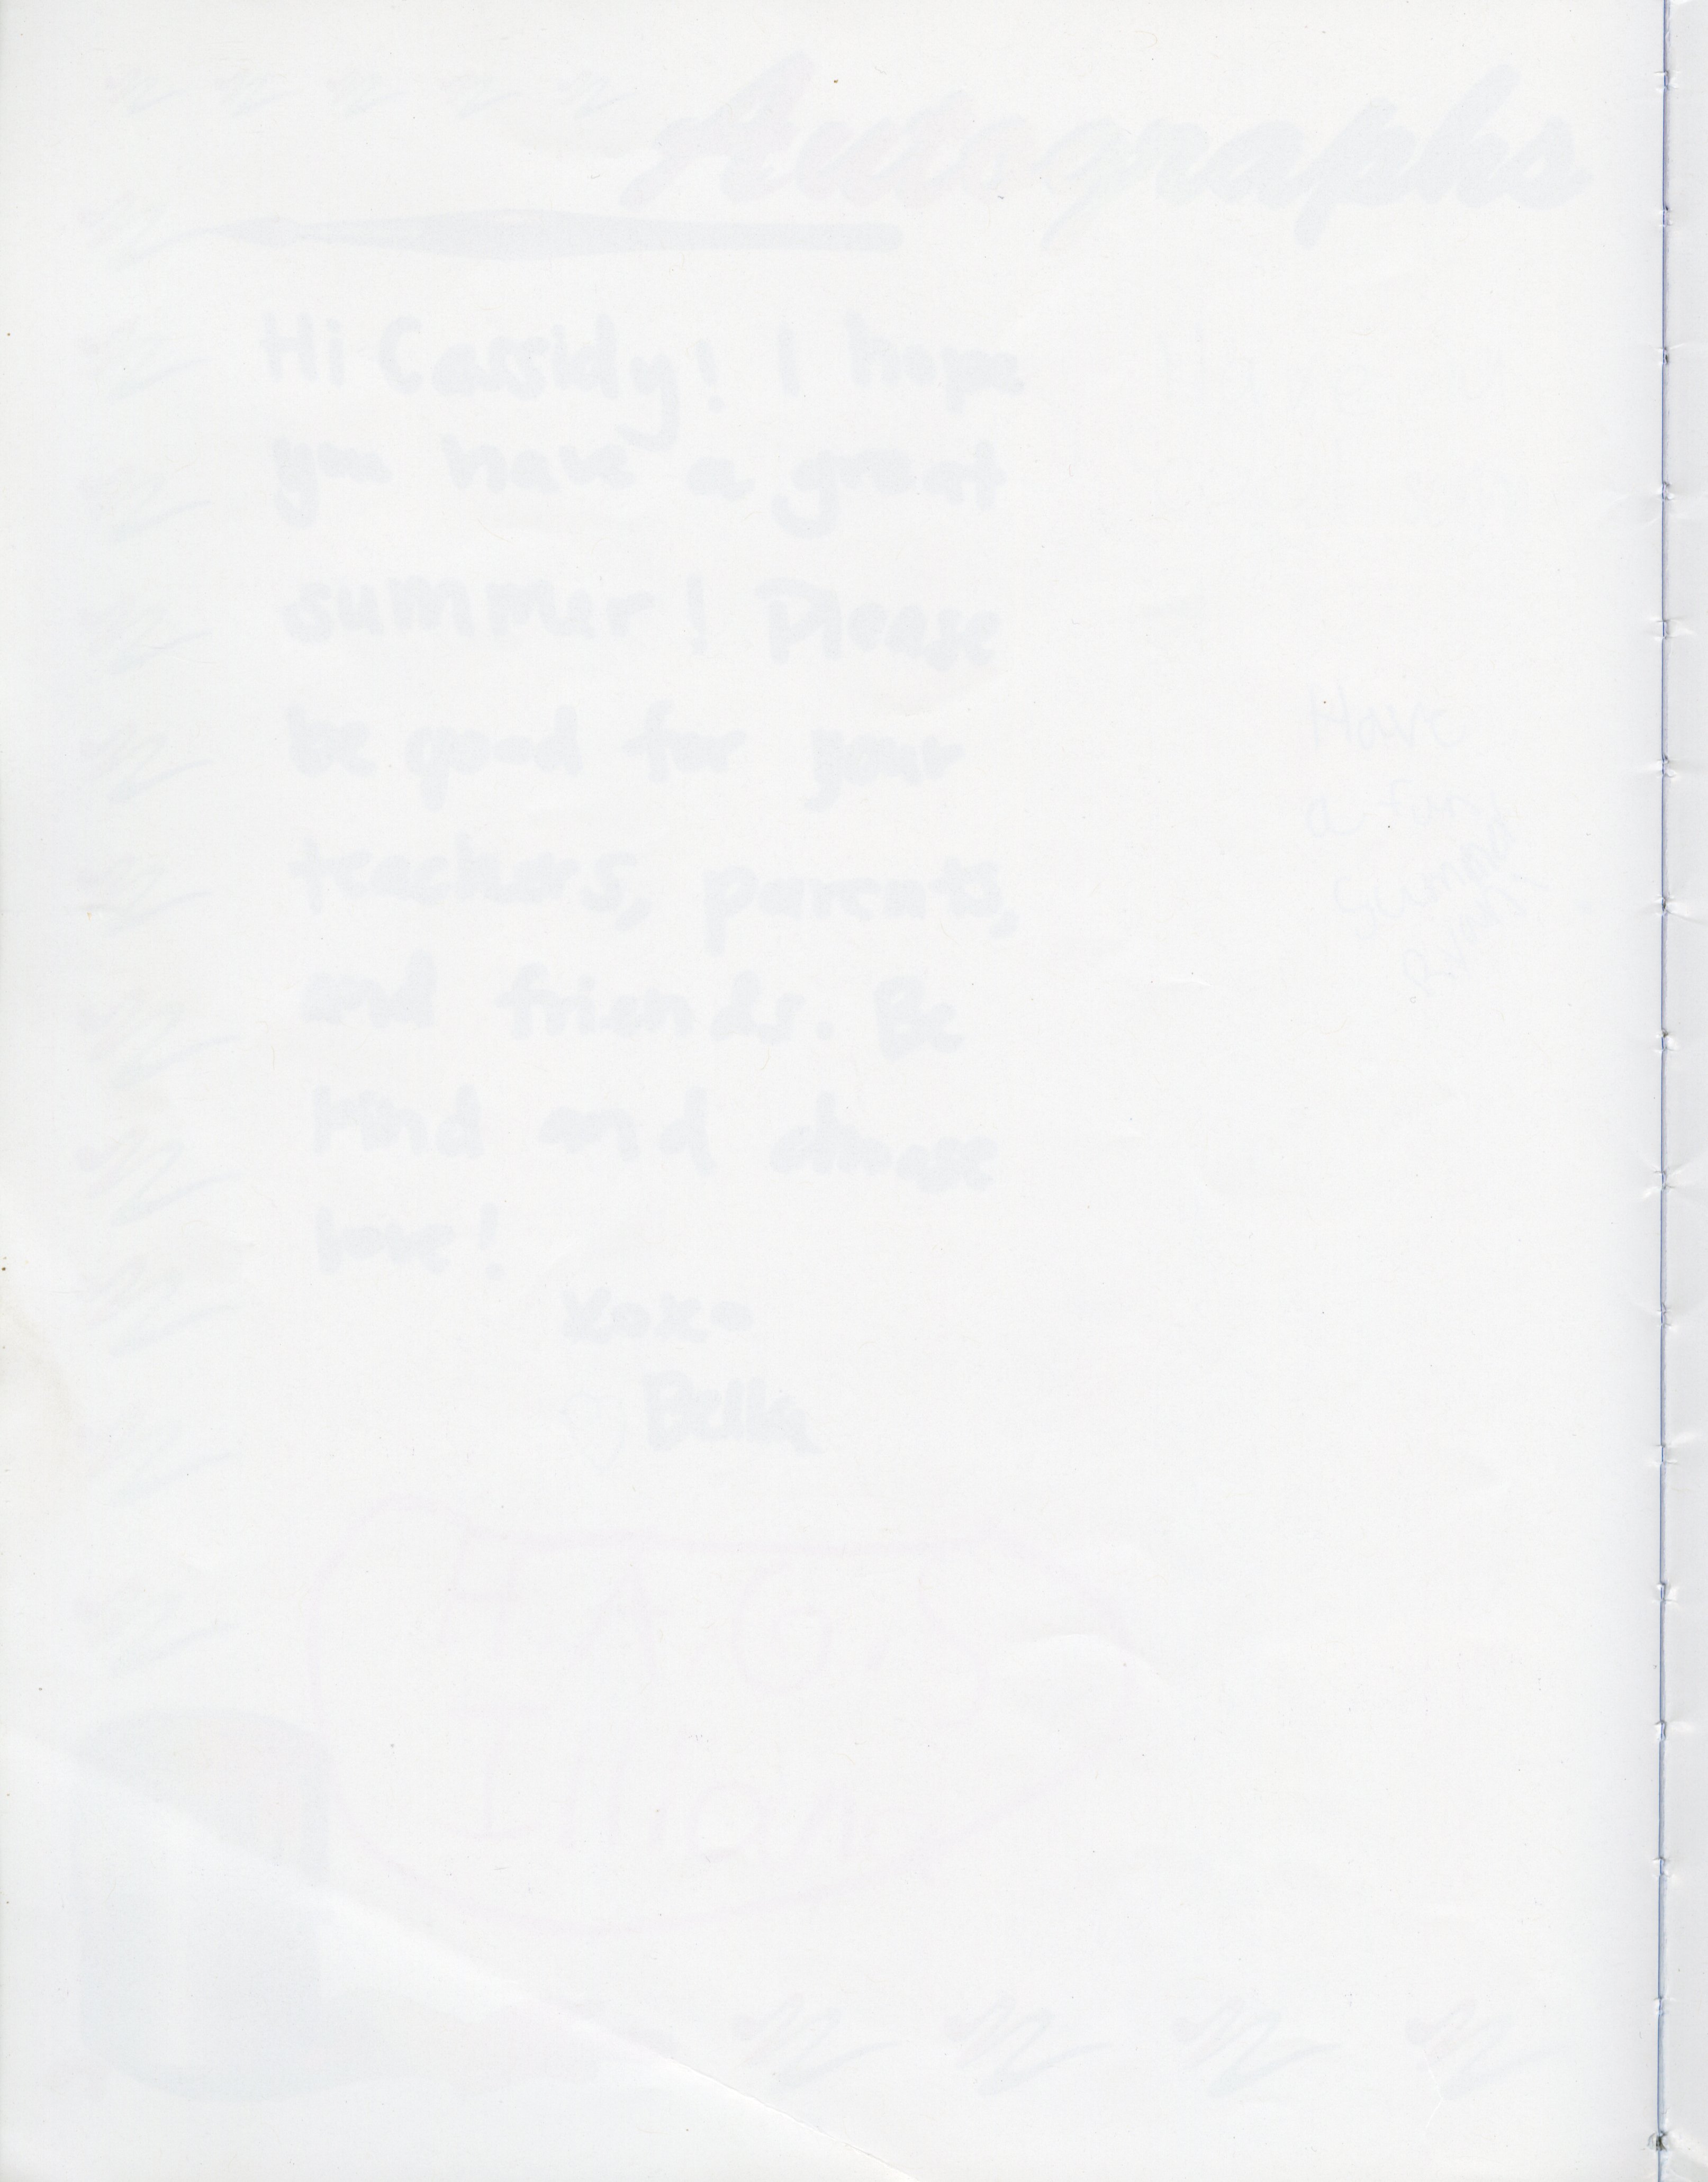 Autographs
Hi Cassidy! I hope
you have a great
summer! Please
be good for your
teachers, parents,
and friends. Be
kind and choose
love!
xoxo
Bella
Have
a fun
summer
HAGS